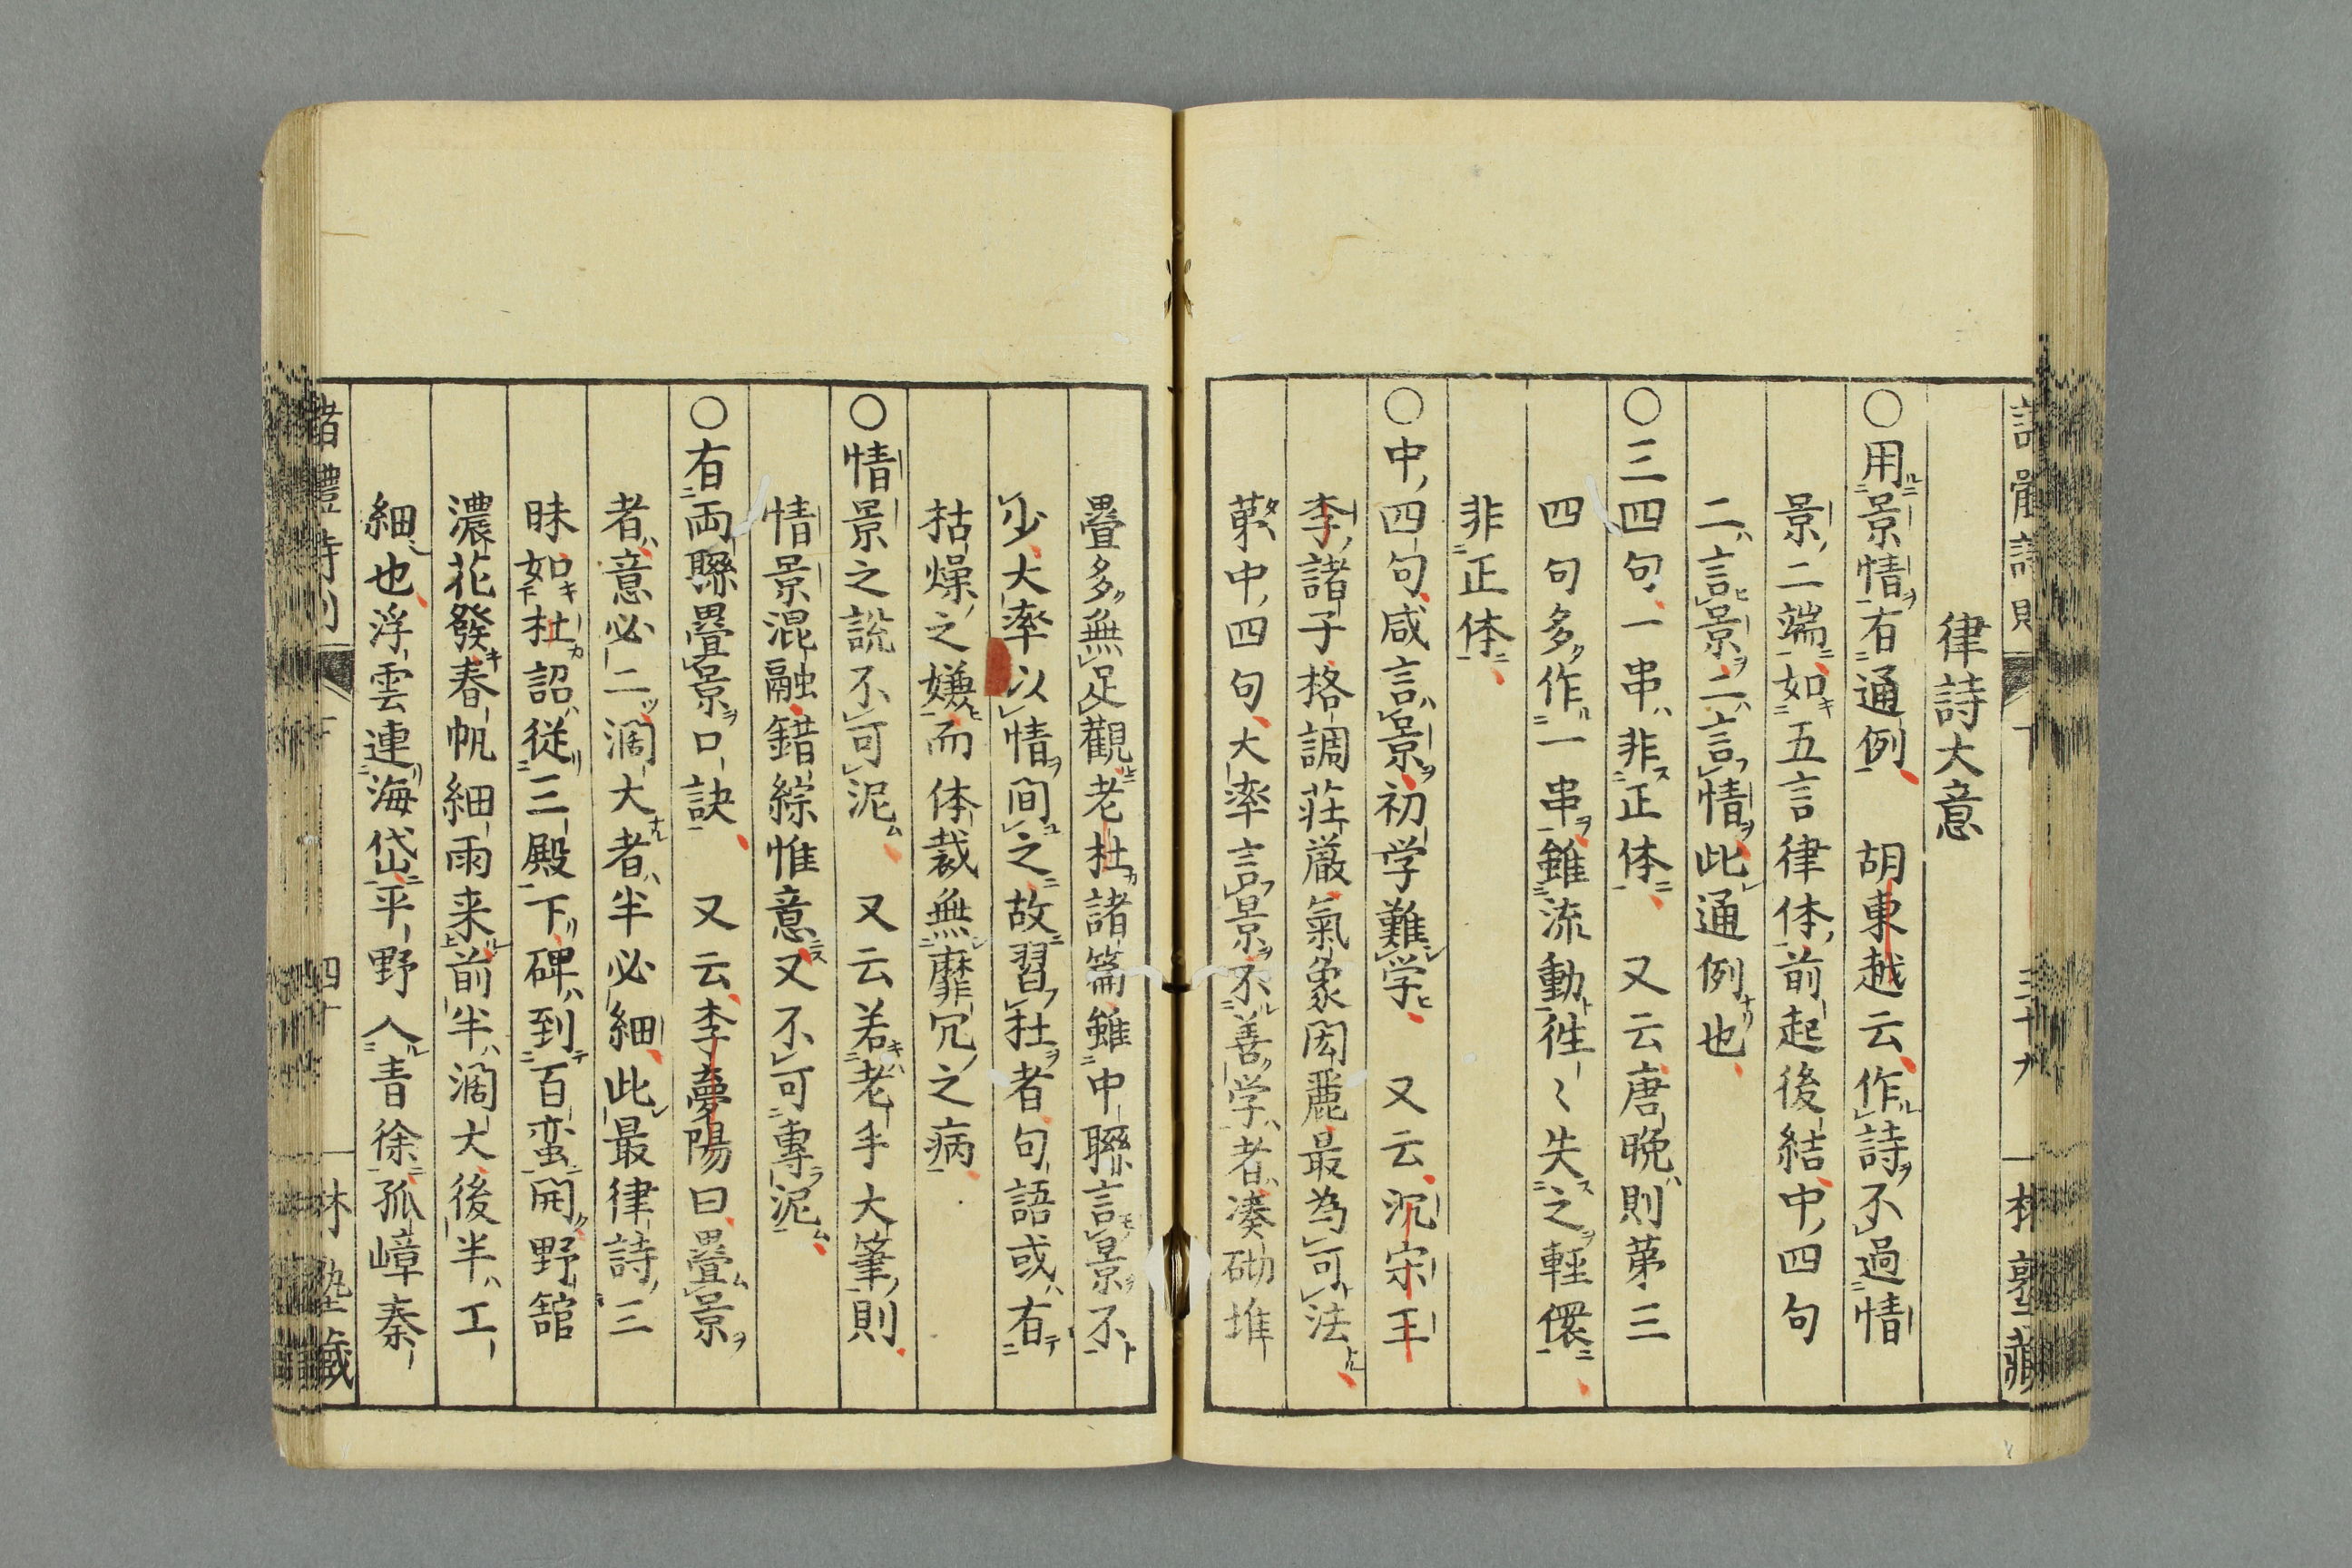 律詩大意
○用景情有通例　胡東越云作詩不過情
景二端如五言律体前起後結中四句
二言景二言情此通例也
○三四句一串非正体　又云唐晩則苐三
四句多作一串雖流動徃〻失之輕儇
非正体
○中四句咸言景初学難学　又云沉宋王
李諸子格調莊嚴氣象閎麗最為可法
苐中四句大率言景不善学者湊砌堆
疊多無足觀老杜諸篇雖中聨言景不
少大率以情間之故習杜者句語或有
枯燥之嫌而体裁無靡冗之病
○情景之說不可泥　又云若老手大筆則
情景混融錯綜惟意又不可專泥
○有両聨疊景口訣　又云李夢陽曰疊景
者意必二濶大者半必細此最律詩三
昧如杜詔從三殿下碑到百蛮開野舘
濃花發春帆細雨来前半濶大後半工
細也浮雲連海岱平野入青徐孤嶂秦